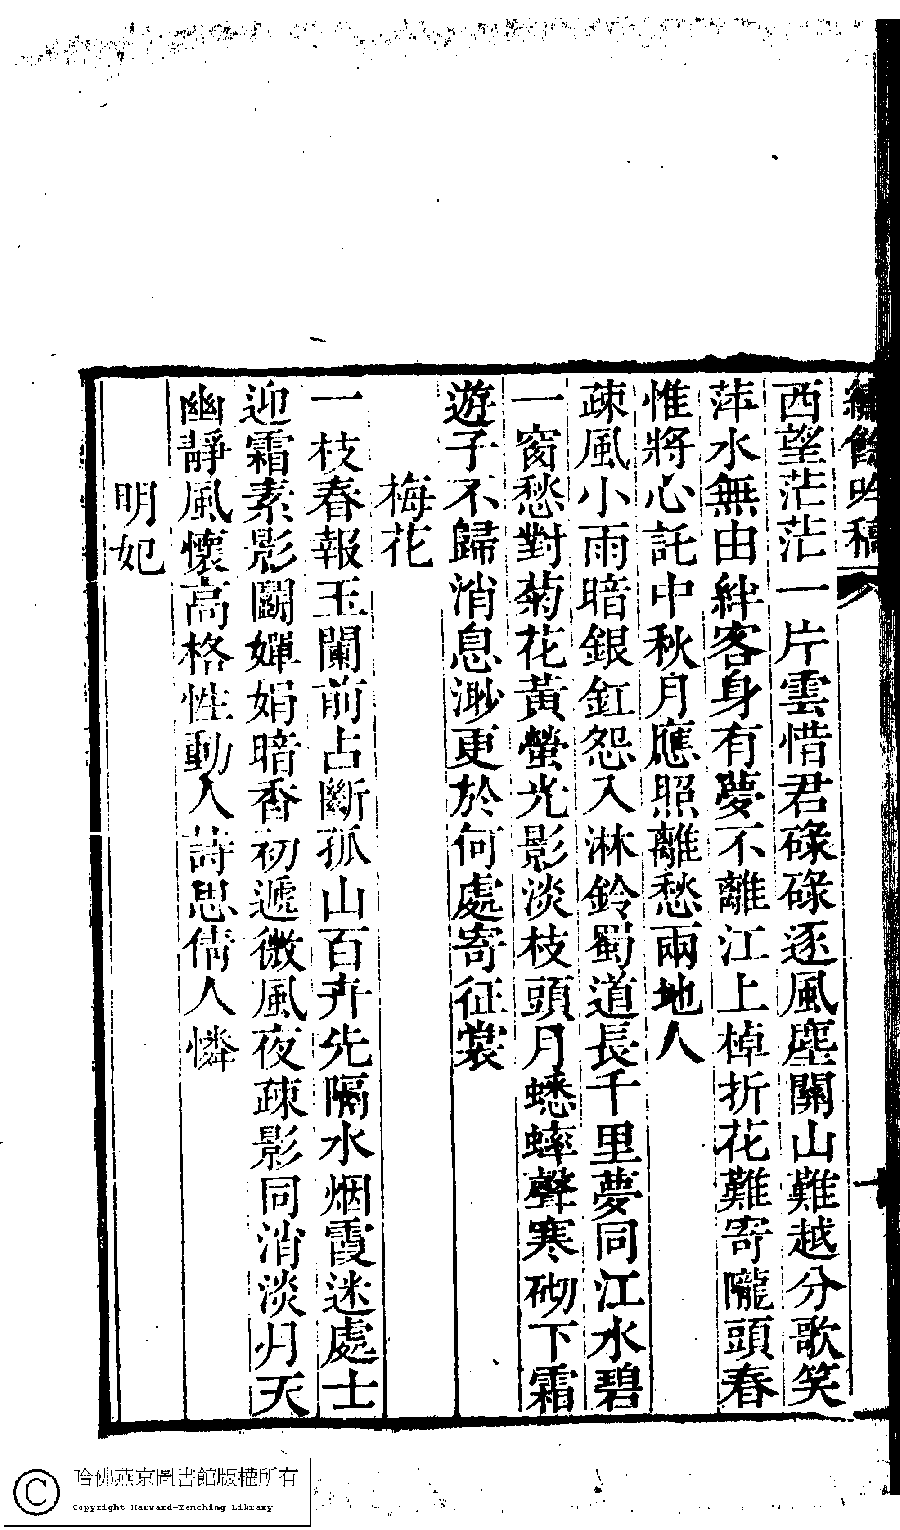 繡餘吟稿
西望茫茫一片雲惜君碌碌逐風塵關山難越分歌笑
萍水無由絆客身有夢不離江上棹折花難寄隴頭春
惟將心託中秋月應照離愁兩地人
疎風小雨暗銀釭怨入淋鈴蜀道長千里夢同江水碧
一窗愁對菊花黃螢光影淡枝頭月蟋蟀聲寒砌下霜
遊子不歸消息渺更於何處寄征裳
梅花
一枝春報玉闌前占斷孤山百卉先隔水烟霞迷處士
迎霜素影鬭嬋娟暗香初遞微風夜疎影同消淡月天
幽靜風懷高格性動人詩思倩人憐
明妃
十
哈佛燕京圖書館版權所有
Copyright Harvard-Yenching Library